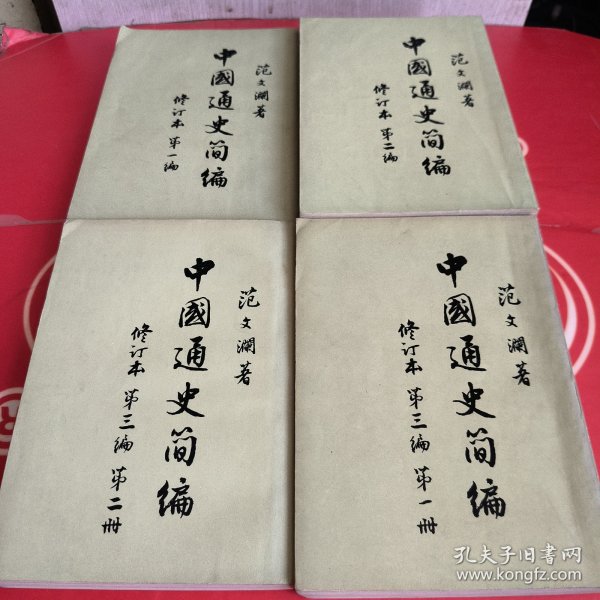 范文瀾著
中國通史简编
修订本 第一编
范文瀾著
中國通史简编
修订本 第二编
范文瀾著
中國通史简编
修订本 第三编 第二册
范文瀾著
中國通史简编
修订本 第三编 第一册
孔夫子旧书网
www.kongfz.com